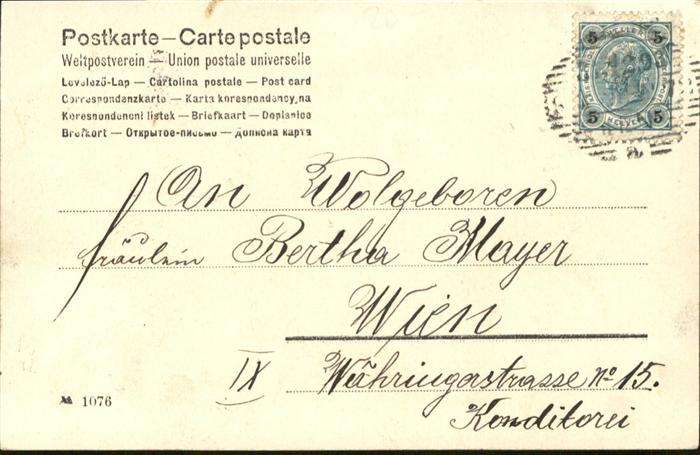 Postkarte — Carte postale
Weltpostverein — Union postale universelle
Levelező-Lap — Cartolina postale — Post card
Correspondenzkarte — Karta korespondencyjna
Korespondencni listek — Briefkaart — Dopisnice
Brefkort — Открытое-письмо — Дописна карта
5 5
5 5
An Wolgeboren
fräulein Bertha Mayer
Wien
IX Währingerstrasse no 15.
Konditorei
№ 1076